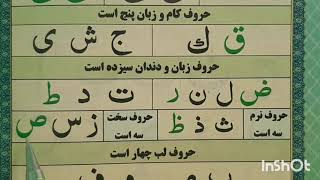 حروف کام و زبان پنج است
ق ك ج ش ی
حروف زبان و دندان سیزده است
ض ل ن ر ت د ط
حروف نرم سه است ث ذ ظ حروف سخت سه است ز س ص
حروف لب چهار است
InShOt